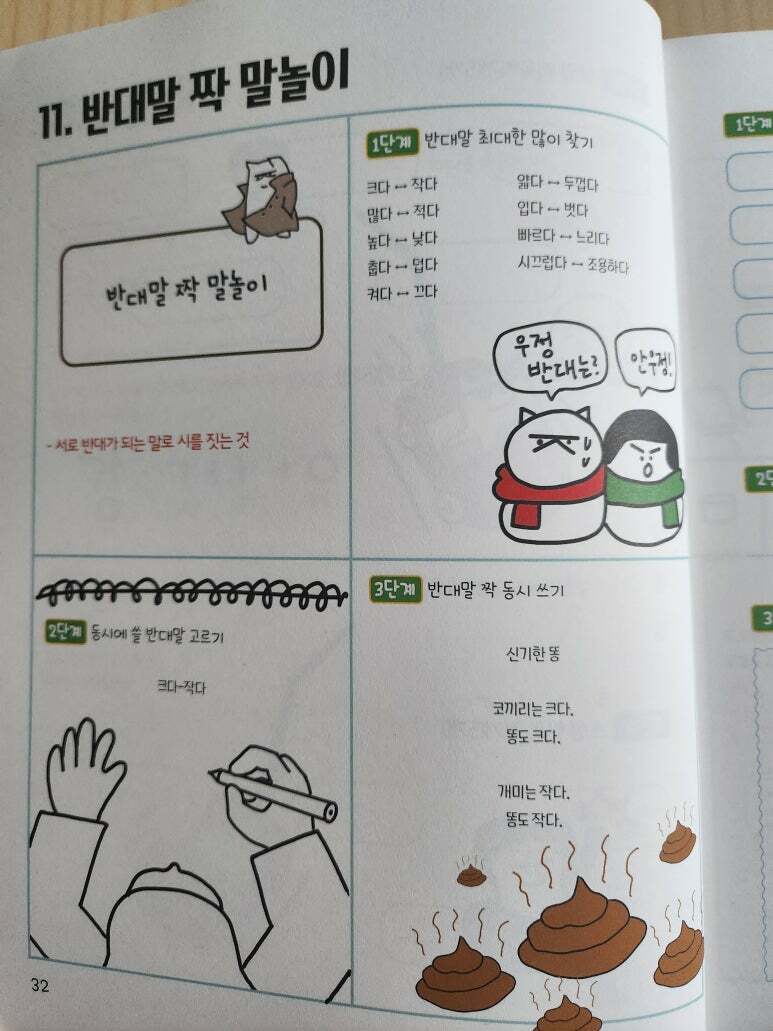 11. 반대말 짝 말놀이
반대말 짝 말놀이
- 서로 반대가 되는 말로 시를 짓는 것
1단계 반대말 최대한 많이 찾기
크다 ↔ 작다
많다 ↔ 적다
높다 ↔ 낮다
춥다 ↔ 덥다
켜다 ↔ 끄다
얇다 ↔ 두껍다
입다 ↔ 벗다
빠르다 ↔ 느리다
시끄럽다 ↔ 조용하다
우정
반대는?
안우정!
2단계 동시에 쓸 반대말 고르기
크다-작다
3단계 반대말 짝 동시 쓰기
신기한 똥
코끼리는 크다.
똥도 크다.
개미는 작다.
똥도 작다.
32
1단계